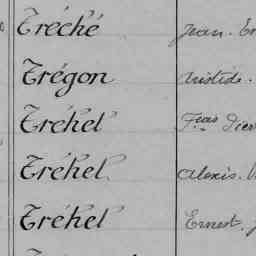 Tréché Jean. Er
Trégon Aristide.
Tréhel Fçois Dieu
Tréhel Alexis. V
Tréhel Ernest. J